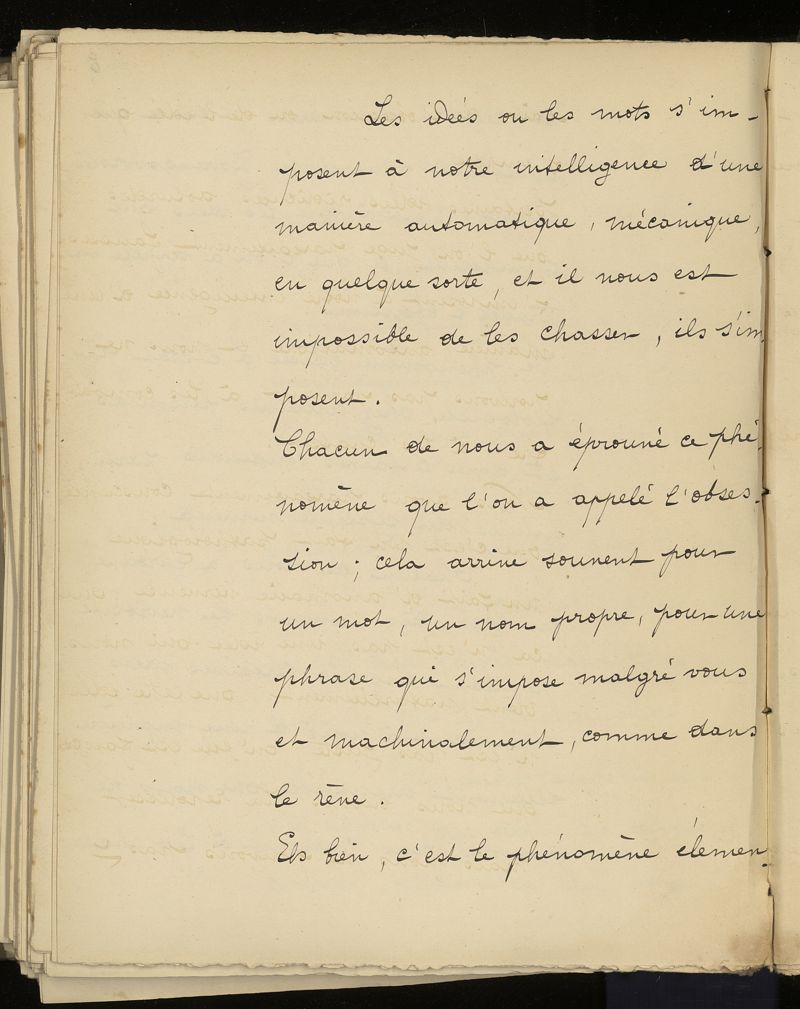 Les idées ou les mots s'im-
posent à notre intelligence d'une
manière automatique, mécanique,
en quelque sorte, et il nous est
impossible de les chasser, ils s'im
posent.
Chacun de nous a éprouvé ce phé-
nomène que l'on a appelé l'obses-
sion ; cela arrive souvent pour
un mot, un nom propre, pour une
phrase qui s'impose malgré vous
et machinalement, comme dans
le rêve.
Eh bien, c'est le phénomène élémen-